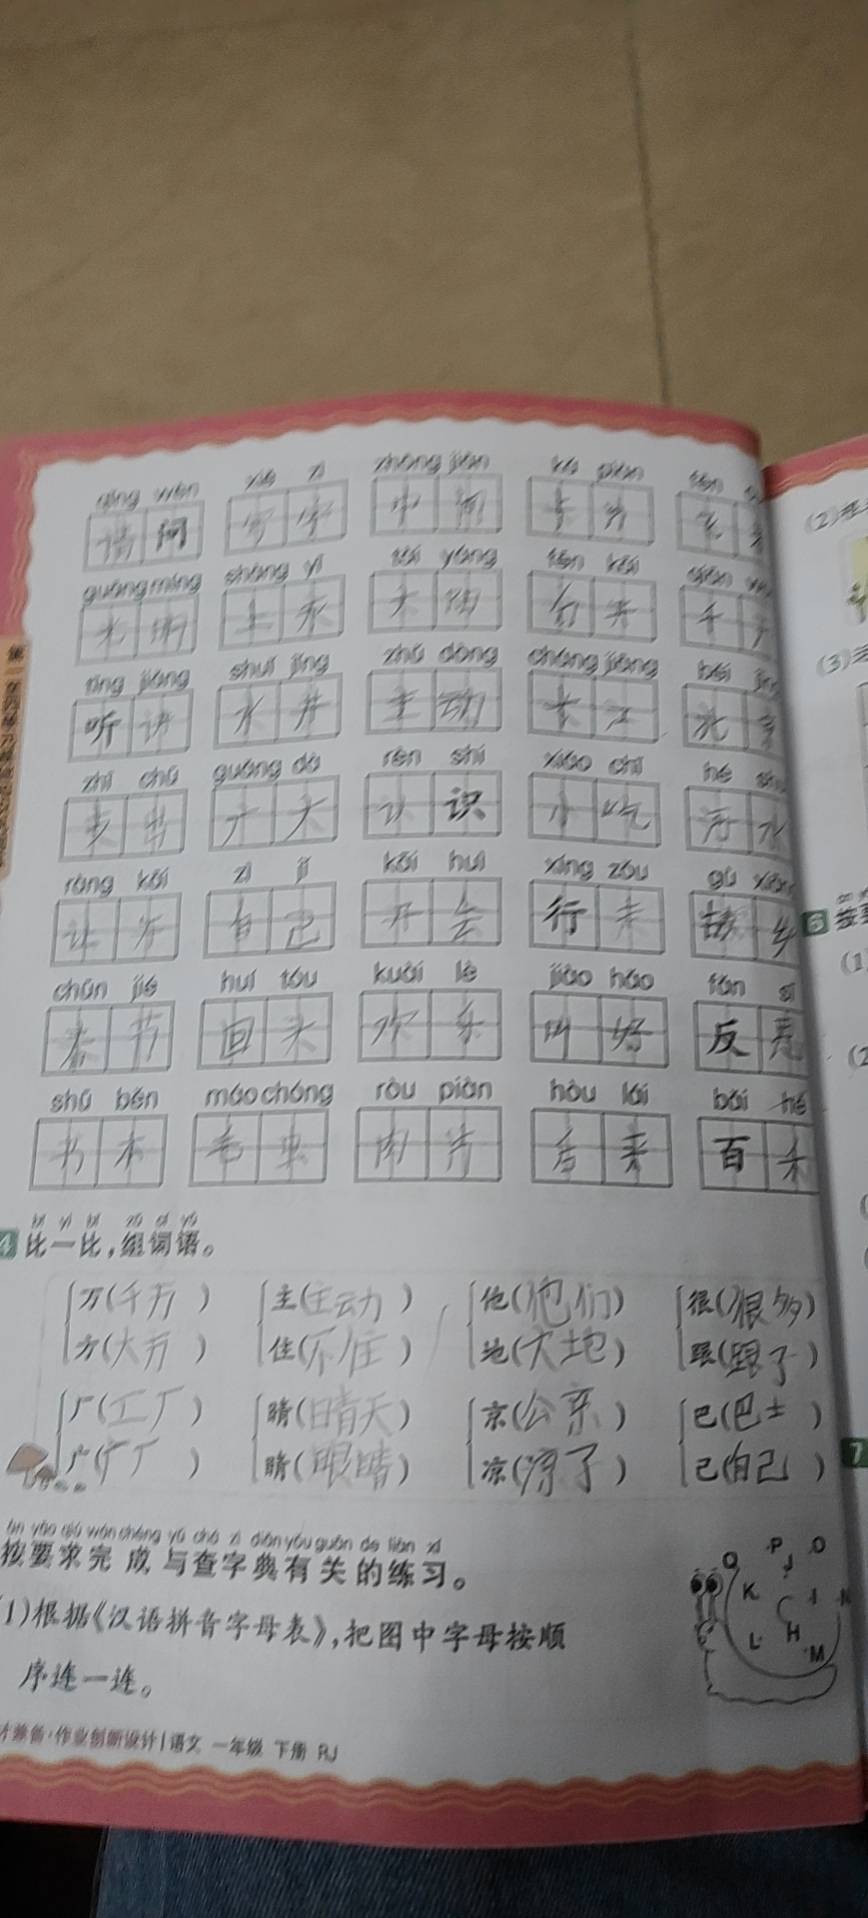 qǐng wèn xiě zì zhōng jiān kǎ piàn
请问 写字 中间 卡片
guāngmíng shàng yī tài yáng fēn kāi
光明 上衣 太阳 分开 千
tīng jiǎng shuǐ jǐng zhǔ dòng cháng jiāng běi jīng
听讲 水井 主动 长江 北京
zhī chū guǎng dà rèn shi xiǎo chī hé shuǐ
支出 广大 认识 小吃 河水
ràng kāi zì jǐ kāi huì xíng zǒu gù xiāng
让开 自己 开会 行走 故乡
chūn jié huí tóu kuài lè jiào hǎo fǎn sī
春节 回头 欢乐 叫好 反
shū běn máo chóng ròu piàn hòu lái bǎi hé
书本 毛虫 肉片 后来 百禾
4 比一比,组词语。
万(千万) 主(主动) 他(他们) 很(很多)
方(大方) 住(不住) 地(大地) 跟(跟了)
厂(工厂) 晴(晴天) 京(公京) 巴(巴士)
广(广厂) 睛(眼睛) 凉(凉了) 己(自己)
àn yāo qiú wán chéng yǔ chá zì diǎn yǒu guān de liàn xí
按要求完成与查字典有关的练习。
(1)根据《汉语拼音字母表》,把图中字母按顺
序连一连。
P O Q J K I N L H M
作业创新设计 | 语文 一年级 下册 RJ